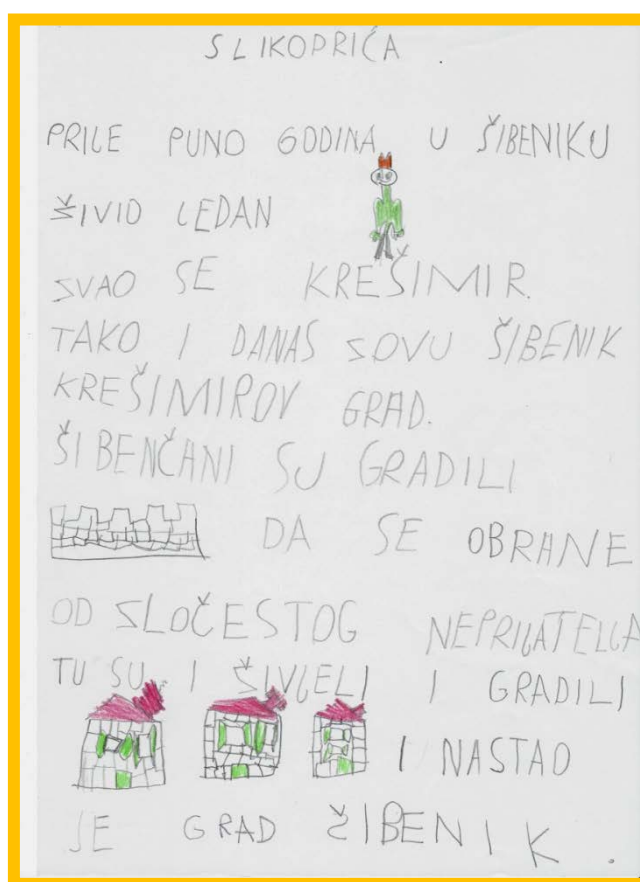 SLIKOPRIČA.
PRIJE PUNO GODINA U ŠIBENIKU
ŽIVIO JEDAN
ZVAO SE KREŠIMIR.
TAKO I DANAS ZOVU ŠIBENIK
KREŠIMIROV GRAD.
ŠIBENČANI SU GRADILI
DA SE OBRANE
OD ZLOČESTOG NEPRIJATELJA
TU SU I ŽIVJELI I GRADILI
I NASTAO
JE GRAD ŠIBENIK.